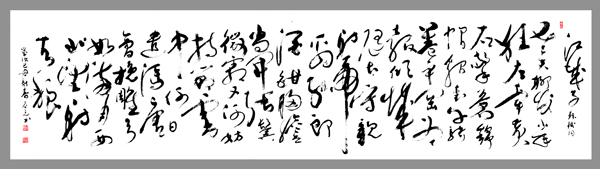 江城子 苏轼词
老夫聊发少年
狂左牵黄
右擎苍锦
帽貂裘千骑
卷平冈为
报倾城
随太守亲
射虎
看孙郎
酒酣胸胆
尚开张鬓
微霜又何妨
持节云
中何日
遣冯唐
会挽雕弓
如满月西
北望射
天狼